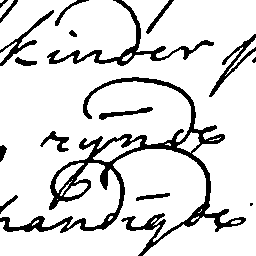 kinder
rynde
handigde